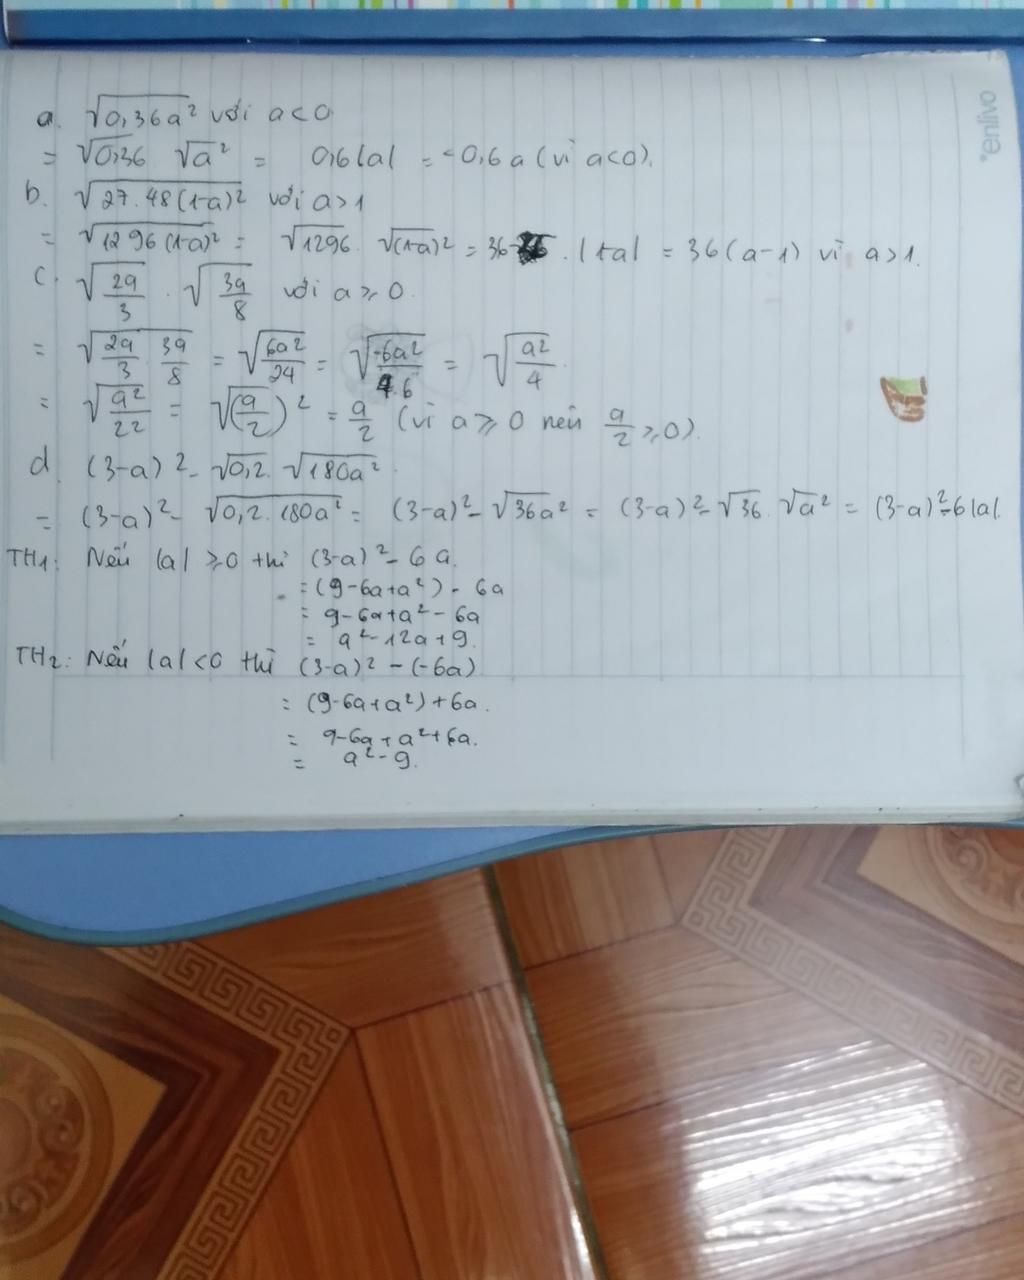 a. √0,36a² với a<0
= √0,36 √a² = 0,6|a| = -0,6a (vì a<0).
b. √27.48(1-a)² với a>1
= √1296(1-a)² = √1296 . √(1-a)² = 36 . |1-a| = 36(a-1) vì a>1.
c. √2a/3 . √3a/8 với a≥0.
= √2a/3 . 3a/8 = √6a²/24 = √6a²/4.6 = √a²/4
= √a²/2² = √(a/2)² = a/2 (vì a≥0 nên a/2 ≥0).
d. (3-a)² - √0,2. √180a²
= (3-a)² - √0,2.180a² = (3-a)² - √36a² = (3-a)² - √36 . √a² = (3-a)² - 6|a|.
TH1: Nếu |a| ≥0 thì (3-a)² - 6a.
= (9-6a+a²) - 6a
= 9-6a+a² - 6a
= a²-12a+9.
TH2: Nếu |a|<0 thì (3-a)² - (-6a)
= (9-6a+a²)+6a.
= 9-6a+a²+6a.
= a²-9.
enlivo